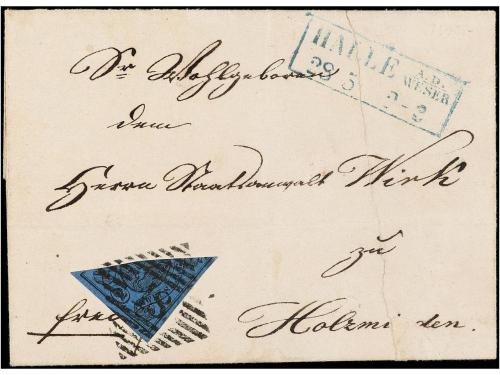 HALLE A.D. WESER
29 5 2-3
Sr Wohlgeboren
dem
Herrn Staatsanwalt Wirk
zu
frei
Holzminden.